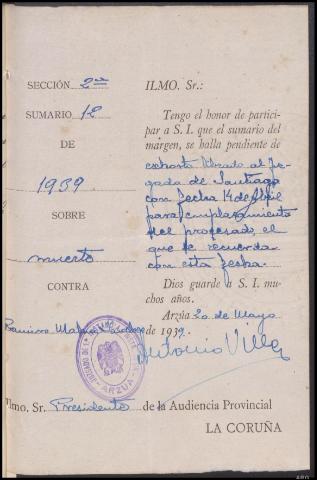 SECCIÓN 2ª
SUMARIO 12
DE
1939
SOBRE
muerto
CONTRA
Ramiro
ILMO. Sr.:
Tengo el honor de partici-
par a S. I. que el sumario del
margen, se halla pendiente de
exhorto librado al Juz-
gado de Santiago
con fecha 14 de Abril
para emplazamiento
del procesado, el
que se recuerda
con esta fecha.
Dios guarde a S. I. mu-
chos años.
Arzúa 20 de Mayo
de 1939.
Antonio Villa
Ilmo. Sr. Presidente de la Audiencia Provincial
LA CORUÑA
ARZUA